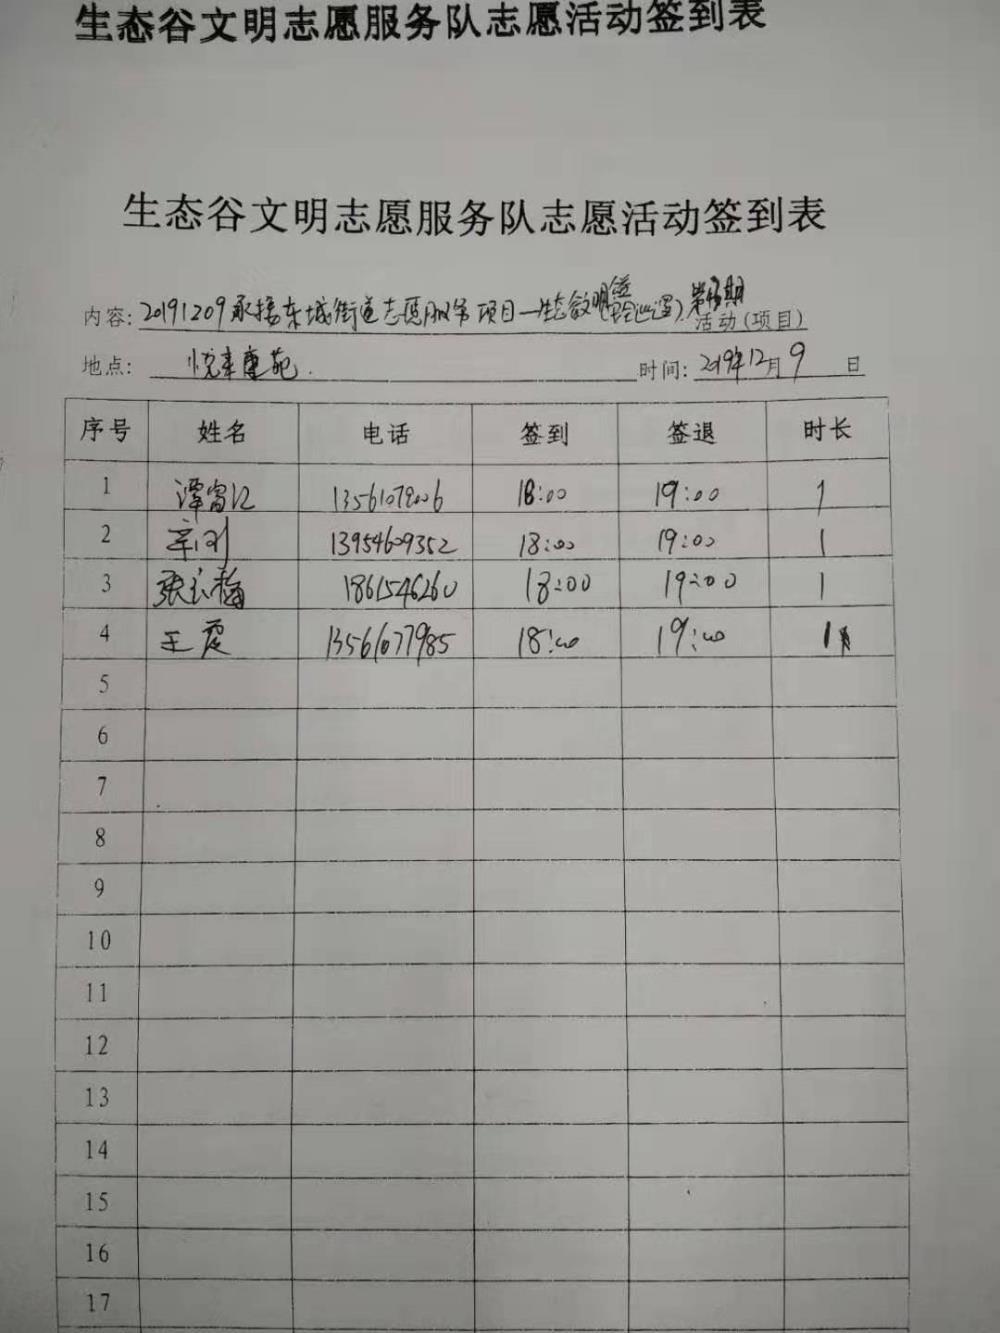 生态谷文明志愿服务队志愿活动签到表
生态谷文明志愿服务队志愿活动签到表
内容: 20191209承接东城街道志愿服务项目—生态 活动(项目)
地点: 悦来 苑. 时间: 2019年12月9日
序号 姓名 电话 签到 签退 时长
1 谭富江 13561079006 18:00 19:00 1
2 辛刚 13954609352 18:00 19:00 1
3 张云梅 1861546260 18:00 19:00 1
4 王霞 13561077985 18:00 19:00 1
5
6
7
8
9
10
11
12
13
14
15
16
17